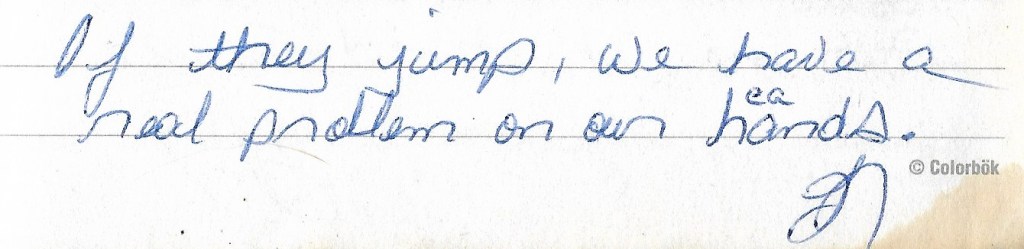 If they jump, we have a
real problem on our hands.
ea
© Colorbök